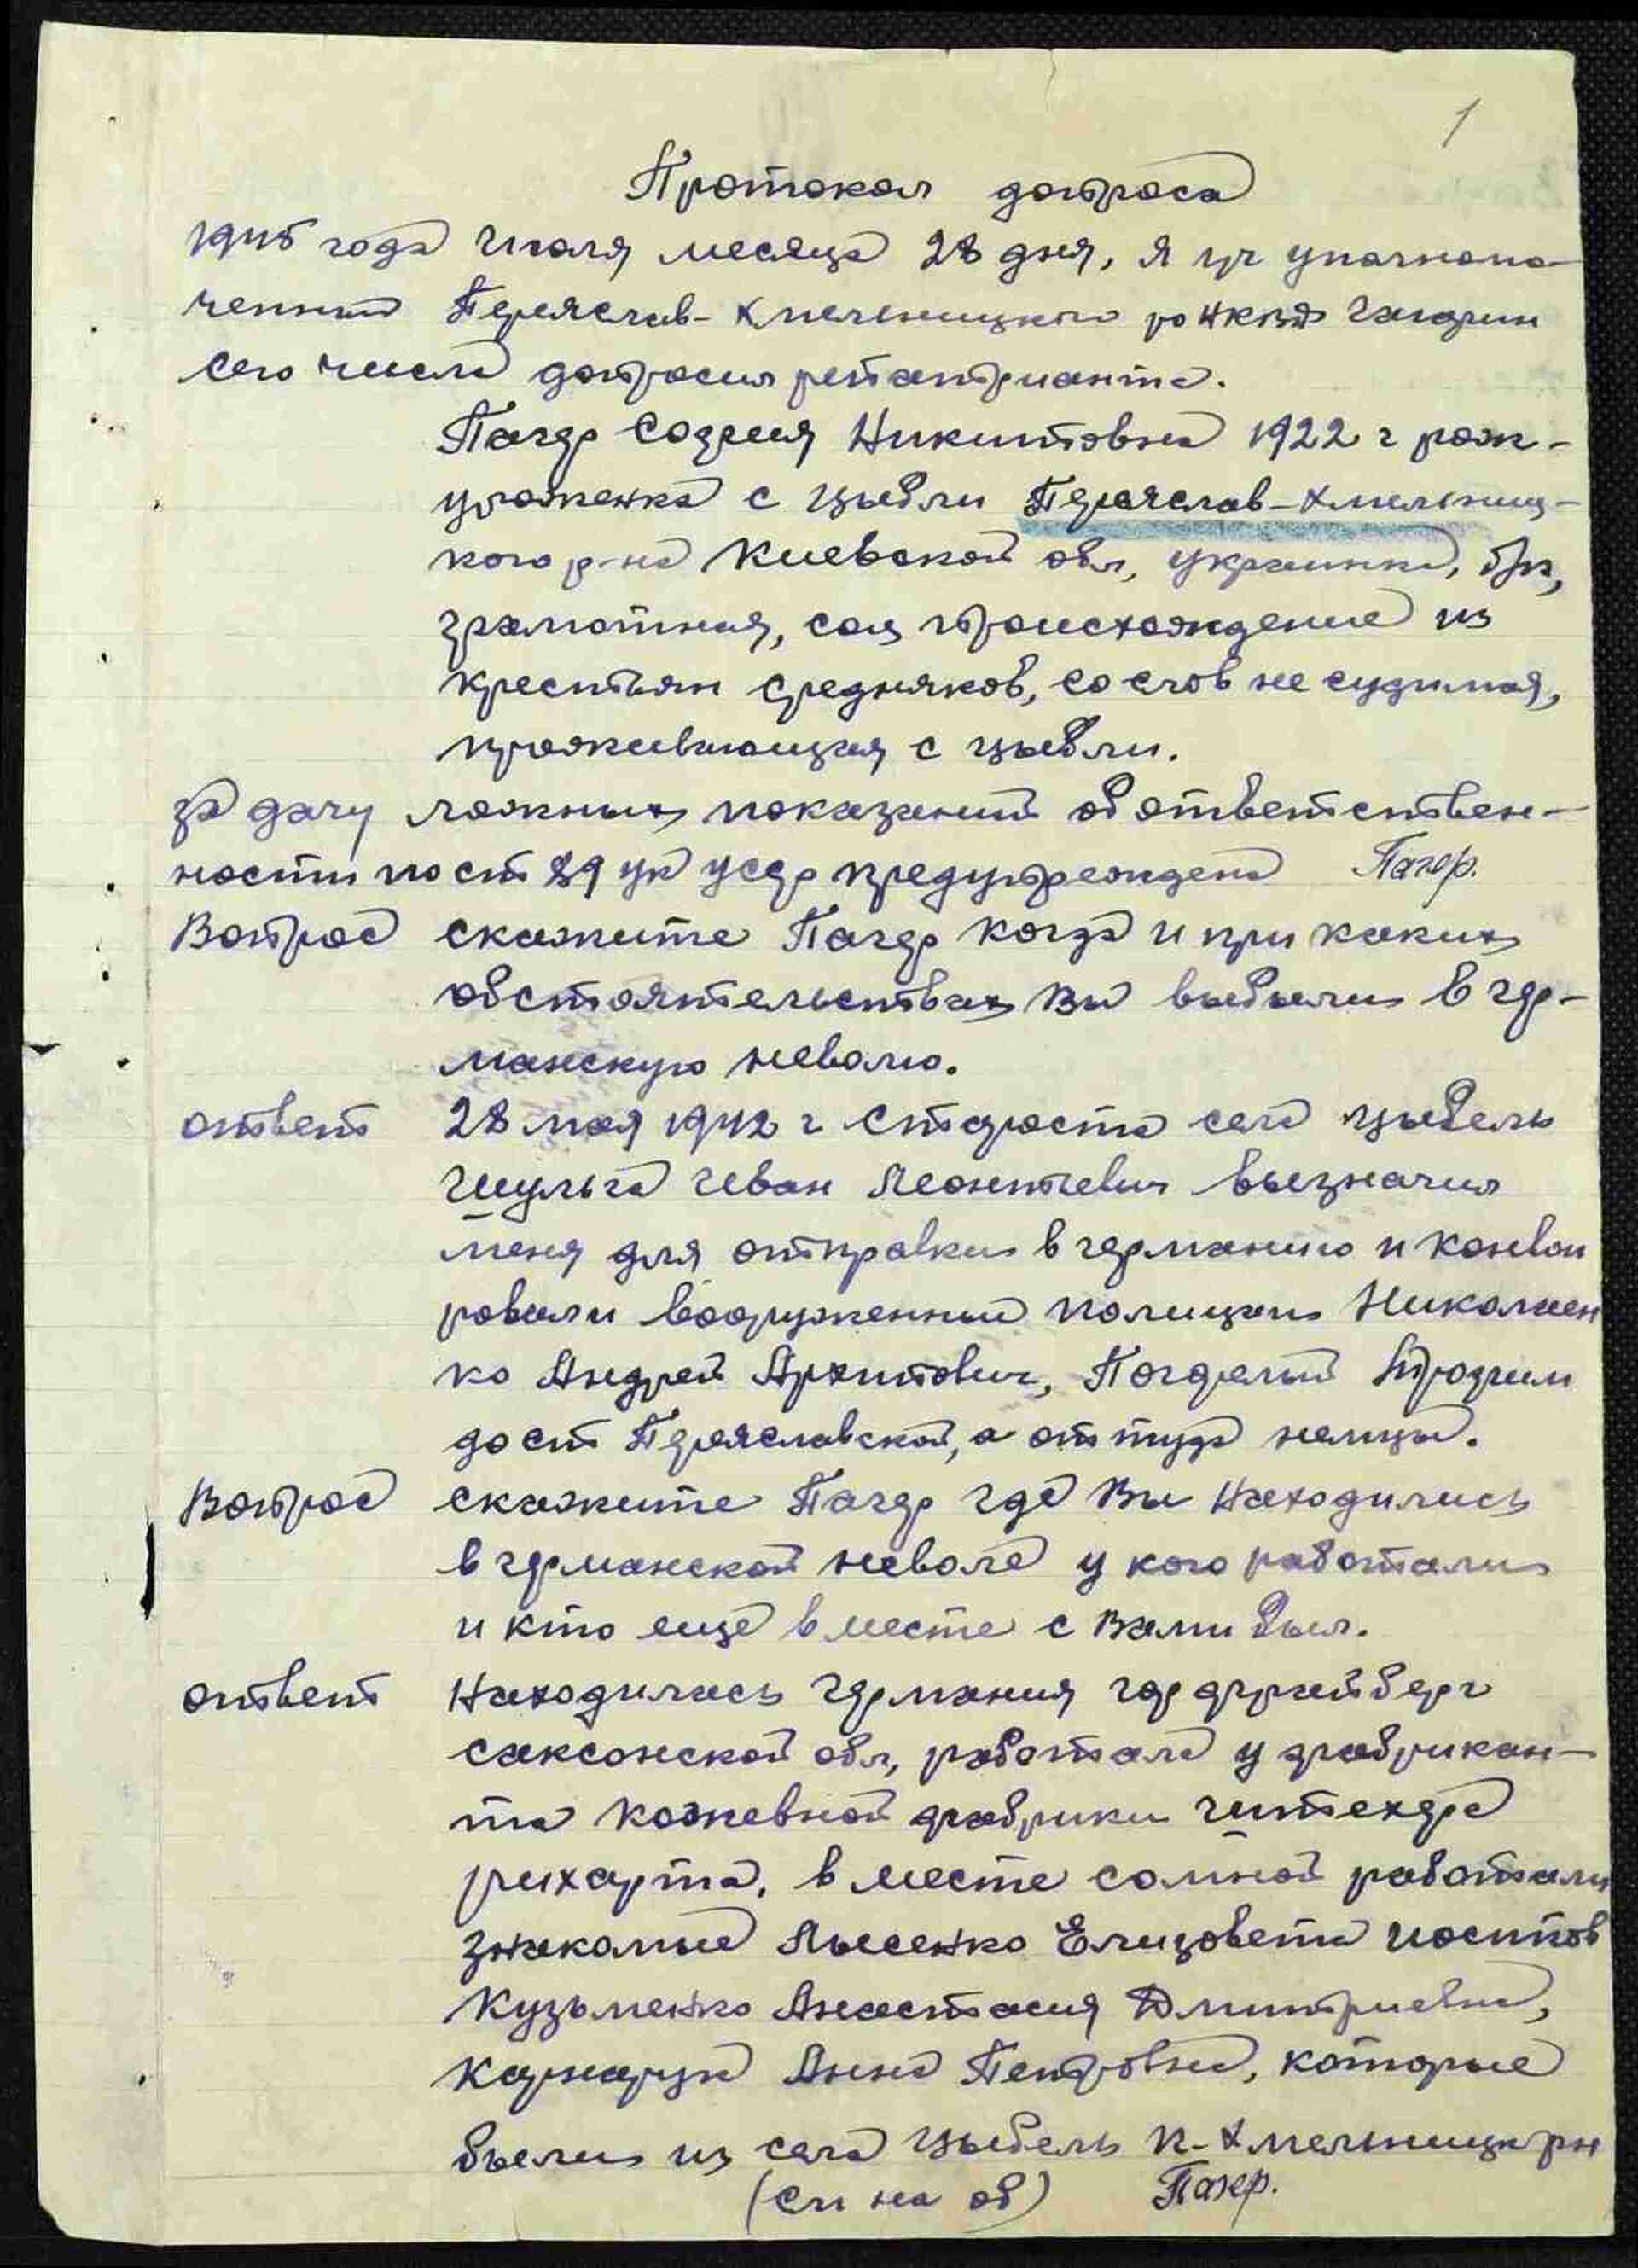 1
Протокол допроса
1945 года Июля месяца 28 дня, я уч уполномо-
ченный Переяслав-Хмельницкого ро НКВД
сего числа допросил репатрианта.
Пагер София Никитовна 1922 г рож-
уроженка с Цыбли Переяслав-Хмельниц-
кого р-на Киевской обл, украинка, б/п,
грамотная, соц происхождение из
крестьян средняков, со слов не судимая,
проживающая с Цыбли.
за дачу ложных показаний об ответствен-
ности по ст 89 ук усср предупреждена Пагер.
Вопрос скажите Пагер когда и при каких
обстоятельствах Вы выбыли в гер-
манскую неволю.
ответ 28 мая 1942 г Староста села Цыбель
Шульга Иван Леонтевич вызначил
меня для отправки в германию и конвои
ровали вооруженный полицаи Николаен
ко Андрей Архипович, Трофим
до ст Переяславской, а от туда немцы.
Вопрос скажите Пагер где Вы Находились
в германской неволе у кого работали
и кто еще в месте с Вами был.
ответ Находилась Германия гор фрайберг
саксонской обл, работала у фабрикан-
та кожевной фабрики
рихарта, в месте сомной работали
знакомые Лысенко Елизовета иосипов
Кузьменко Анастасия Дмитриевна,
Анна Петровна, которые
были из села Цыбель П-Хмельницк рн
(См на об) Пагер.